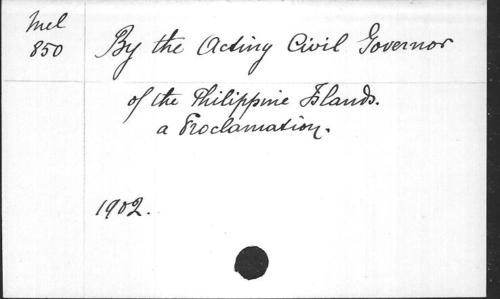 Mel
850
By the Acting Civil Governor
of the Philippine Islands.
a Proclamation.
1902.